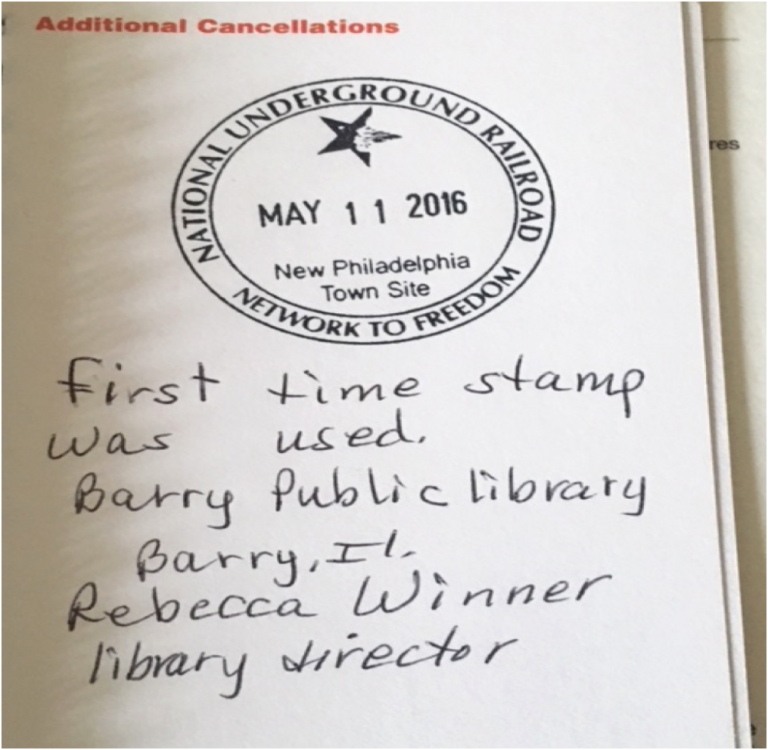 Additional Cancellations
NATIONAL UNDERGROUND RAILROAD
MAY 11 2016
New Philadelphia
Town Site
NETWORK TO FREEDOM
res
First time stamp
was used.
Barry Public library
Barry, Il.
Rebecca Winner
library director